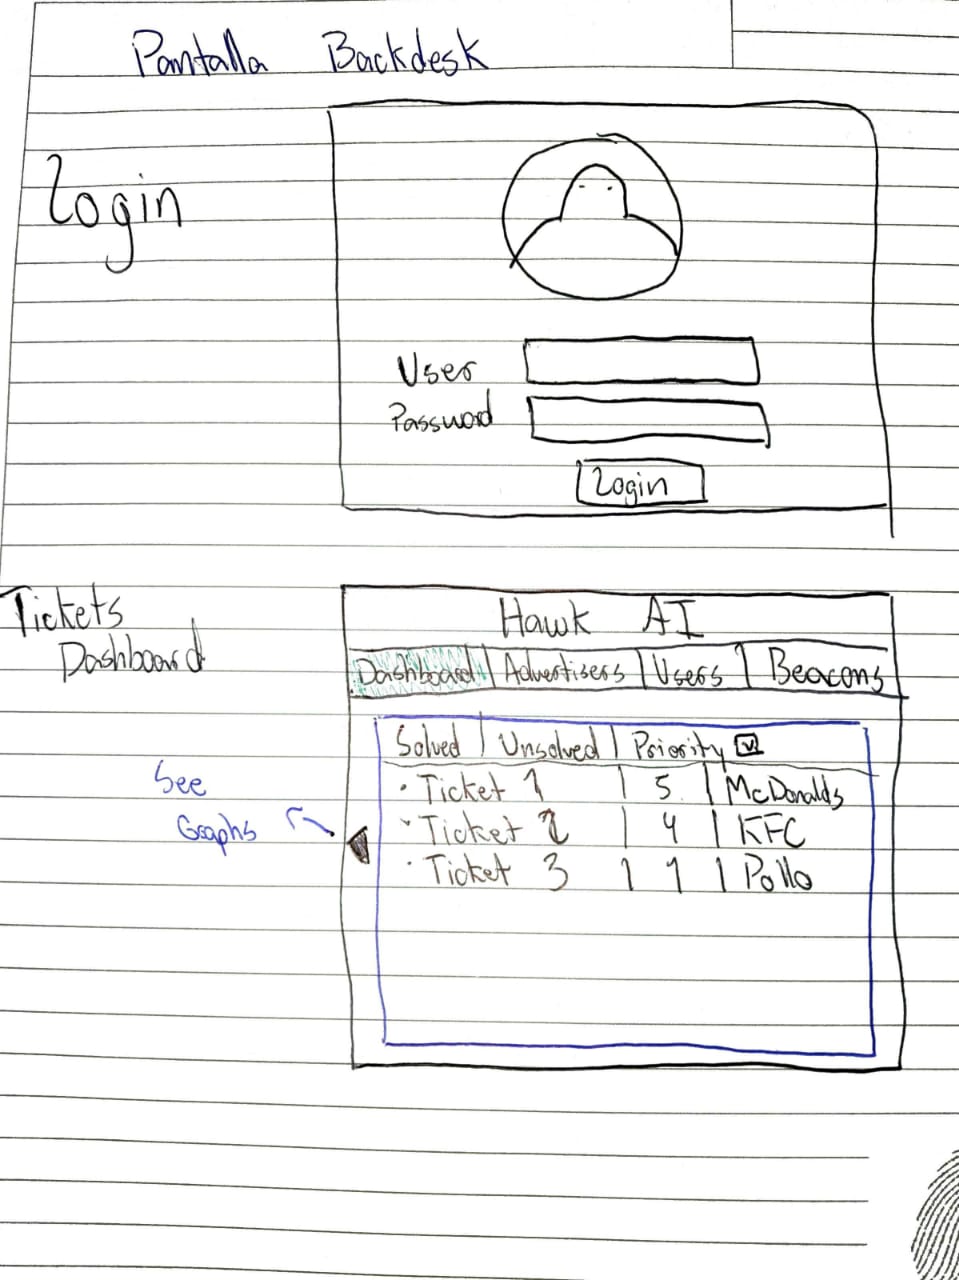 Pantalla Backdesk
Login
User
Password
Login
Tickets
Dashboard
Hawk AI
Dashboard | Advertisers | Users | Beacons
Solved | Unsolved | Priority
• Ticket 1 | 5 | McDonalds
• Ticket 2 | 4 | KFC
• Ticket 3 | 1 | Pollo
See
Graphs